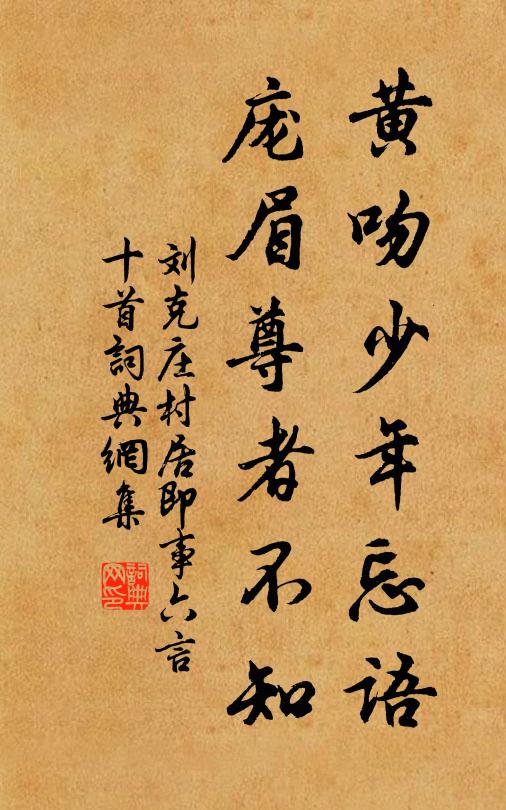 黄吻少年忘语
庞眉尊者不知
刘克庄村居即事六言
十首詞典網集
詞典
网印